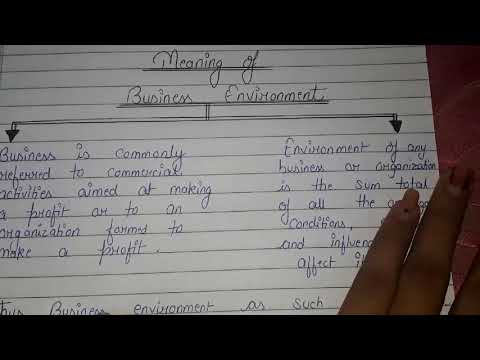 Meaning of
Business Environment
Business is commonly
referred to commercial
activities aimed at making
a profit or to an
organization formed to
make a profit.
Environment of any
business or organization
is the sum total
of all the
conditions,
and
affect
Business environment as such